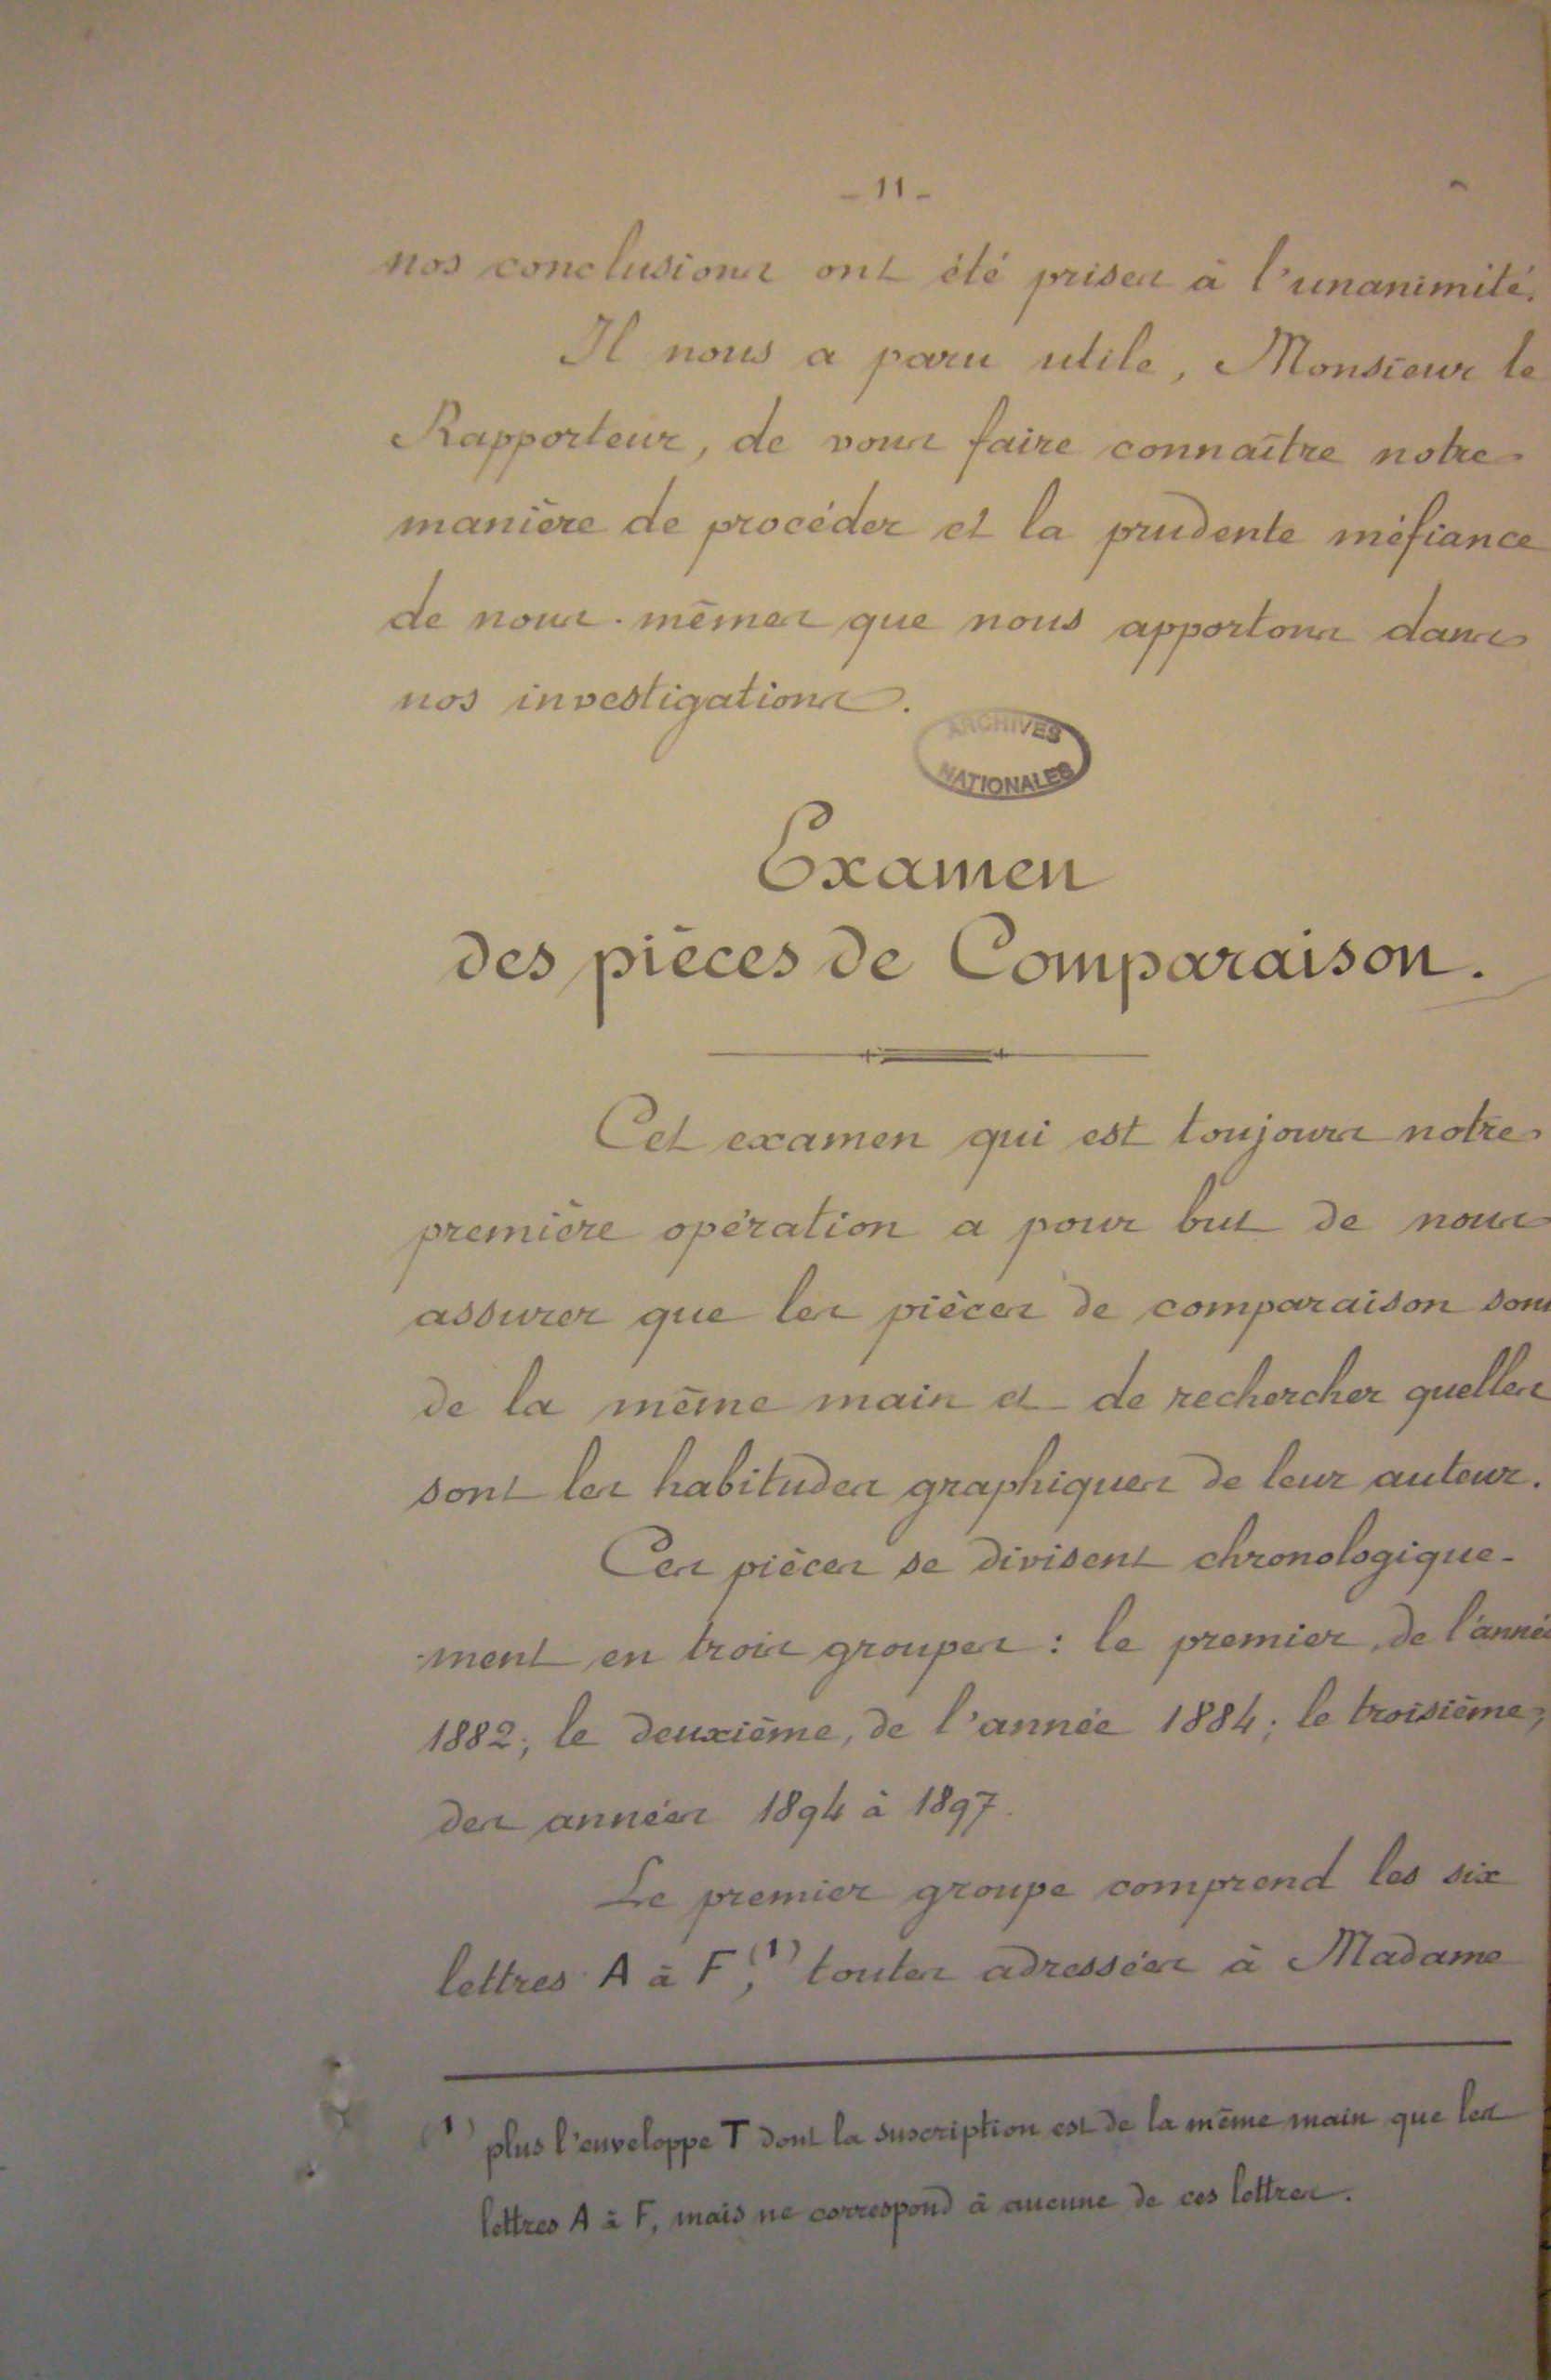 - 11 -
nos conclusions ont été prises à l'unanimité.
Il nous a paru utile, Monsieur le
Rapporteur, de vous faire connaître notre
manière de procéder et la prudente méfiance
de nous-mêmes que nous apportons dans
nos investigations.
ARCHIVES
NATIONALES
Examen
des pièces de Comparaison.
Cet examen qui est toujours notre
première opération a pour but de nous
assurer que les pièces de comparaison sont
de la même main et de rechercher quelles
sont les habitudes graphiques de leur auteur.
Ces pièces se divisent chronologique-
ment en trois groupes : le premier, de l'année
1882; le deuxième, de l'année 1884; le troisième,
des années 1894 à 1897.
Le premier groupe comprend les six
lettres A à F,(1) toutes adressées à Madame
(1) plus l'enveloppe T dont la suscription est de la même main que les
lettres A à F, mais ne correspond à aucune de ces lettres.